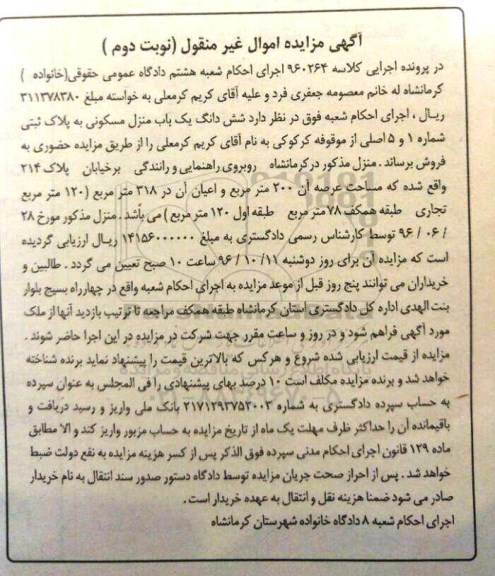 آگهی مزایده اموال غیر منقول (نوبت دوم )
در پرونده اجرایی کلاسه ۹۶۰۲۶۴ اجرای احکام شعبه هشتم دادگاه عمومی حقوقی(خانواده )
کرمانشاه له خانم معصومه جعفری فرد و علیه آقای کریم کرمعلی به خواسته مبلغ ۳۱۱۳۷۸۳۸۰
ریال ، اجرای احکام شعبه فوق در نظر دارد شش دانگ یک باب منزل مسکونی به پلاک ثبتی
شماره ۱ و ۵ اصلی از موقوفه کرکوکی به نام آقای کریم کرمعلی را از طریق مزایده حضوری به
فروش برساند . منزل مذکور در کرمانشاه روبروی راهنمایی و رانندگی برخیابان پلاک ۲۱۴
واقع شده که مساحت عرصه آن ۲۰۰ متر مربع و اعیان آن در ۳۱۸ متر مربع (۱۲۰ متر مربع
تجاری طبقه همکف ۷۸ متر مربع طبقه اول ۱۲۰ متر مربع ) می باشد . منزل مذکور مورخ ۲۸
/ ۰۶ / ۹۶ توسط کارشناس رسمی دادگستری به مبلغ ۱۴۱۵۶۰۰۰۰۰۰ ریال ارزیابی گردیده
است که مزایده آن برای روز دوشنبه ۹۶/۱۰/۱۱ ساعت ۱۰ صبح تعیین می گردد . طالبین و
خریداران می توانند پنج روز قبل از موعد مزایده به اجرای احکام شعبه واقع در چهارراه بسیج بلوار
بنت الهدی اداره کل دادگستری استان کرمانشاه طبقه همکف مراجعه تا ترتیب بازدید آنها از ملک
مورد آگهی فراهم شود و در روز و ساعت مقرر جهت شرکت در مزایده در این اجرا حاضر شوند .
مزایده از قیمت ارزیابی شده شروع و هر کس که بالاترین قیمت را پیشنهاد نماید برنده شناخته
خواهد شد و برنده مزایده مکلف است ۱۰ درصد بهای پیشنهادی را فی المجلس به عنوان سپرده
به حساب سپرده دادگستری به شماره ۲۱۷۱۲۹۳۷۵۳۰۰۳ بانک ملی واریز و رسید دریافت و
باقیمانده آن را حداکثر ظرف مهلت یک ماه از تاریخ مزایده به حساب مزبور واریز کند و الا مطابق
ماده ۱۲۹ قانون اجرای احکام مدنی سپرده فوق الذکر پس از کسر هزینه مزایده به نفع دولت ضبط
خواهد شد . پس از احراز صحت جریان مزایده توسط دادگاه دستور صدور سند انتقال به نام خریدار
صادر می شود ضمنا هزینه نقل و انتقال به عهده خریدار است .
اجرای احکام شعبه ۸ دادگاه خانواده شهرستان کرمانشاه